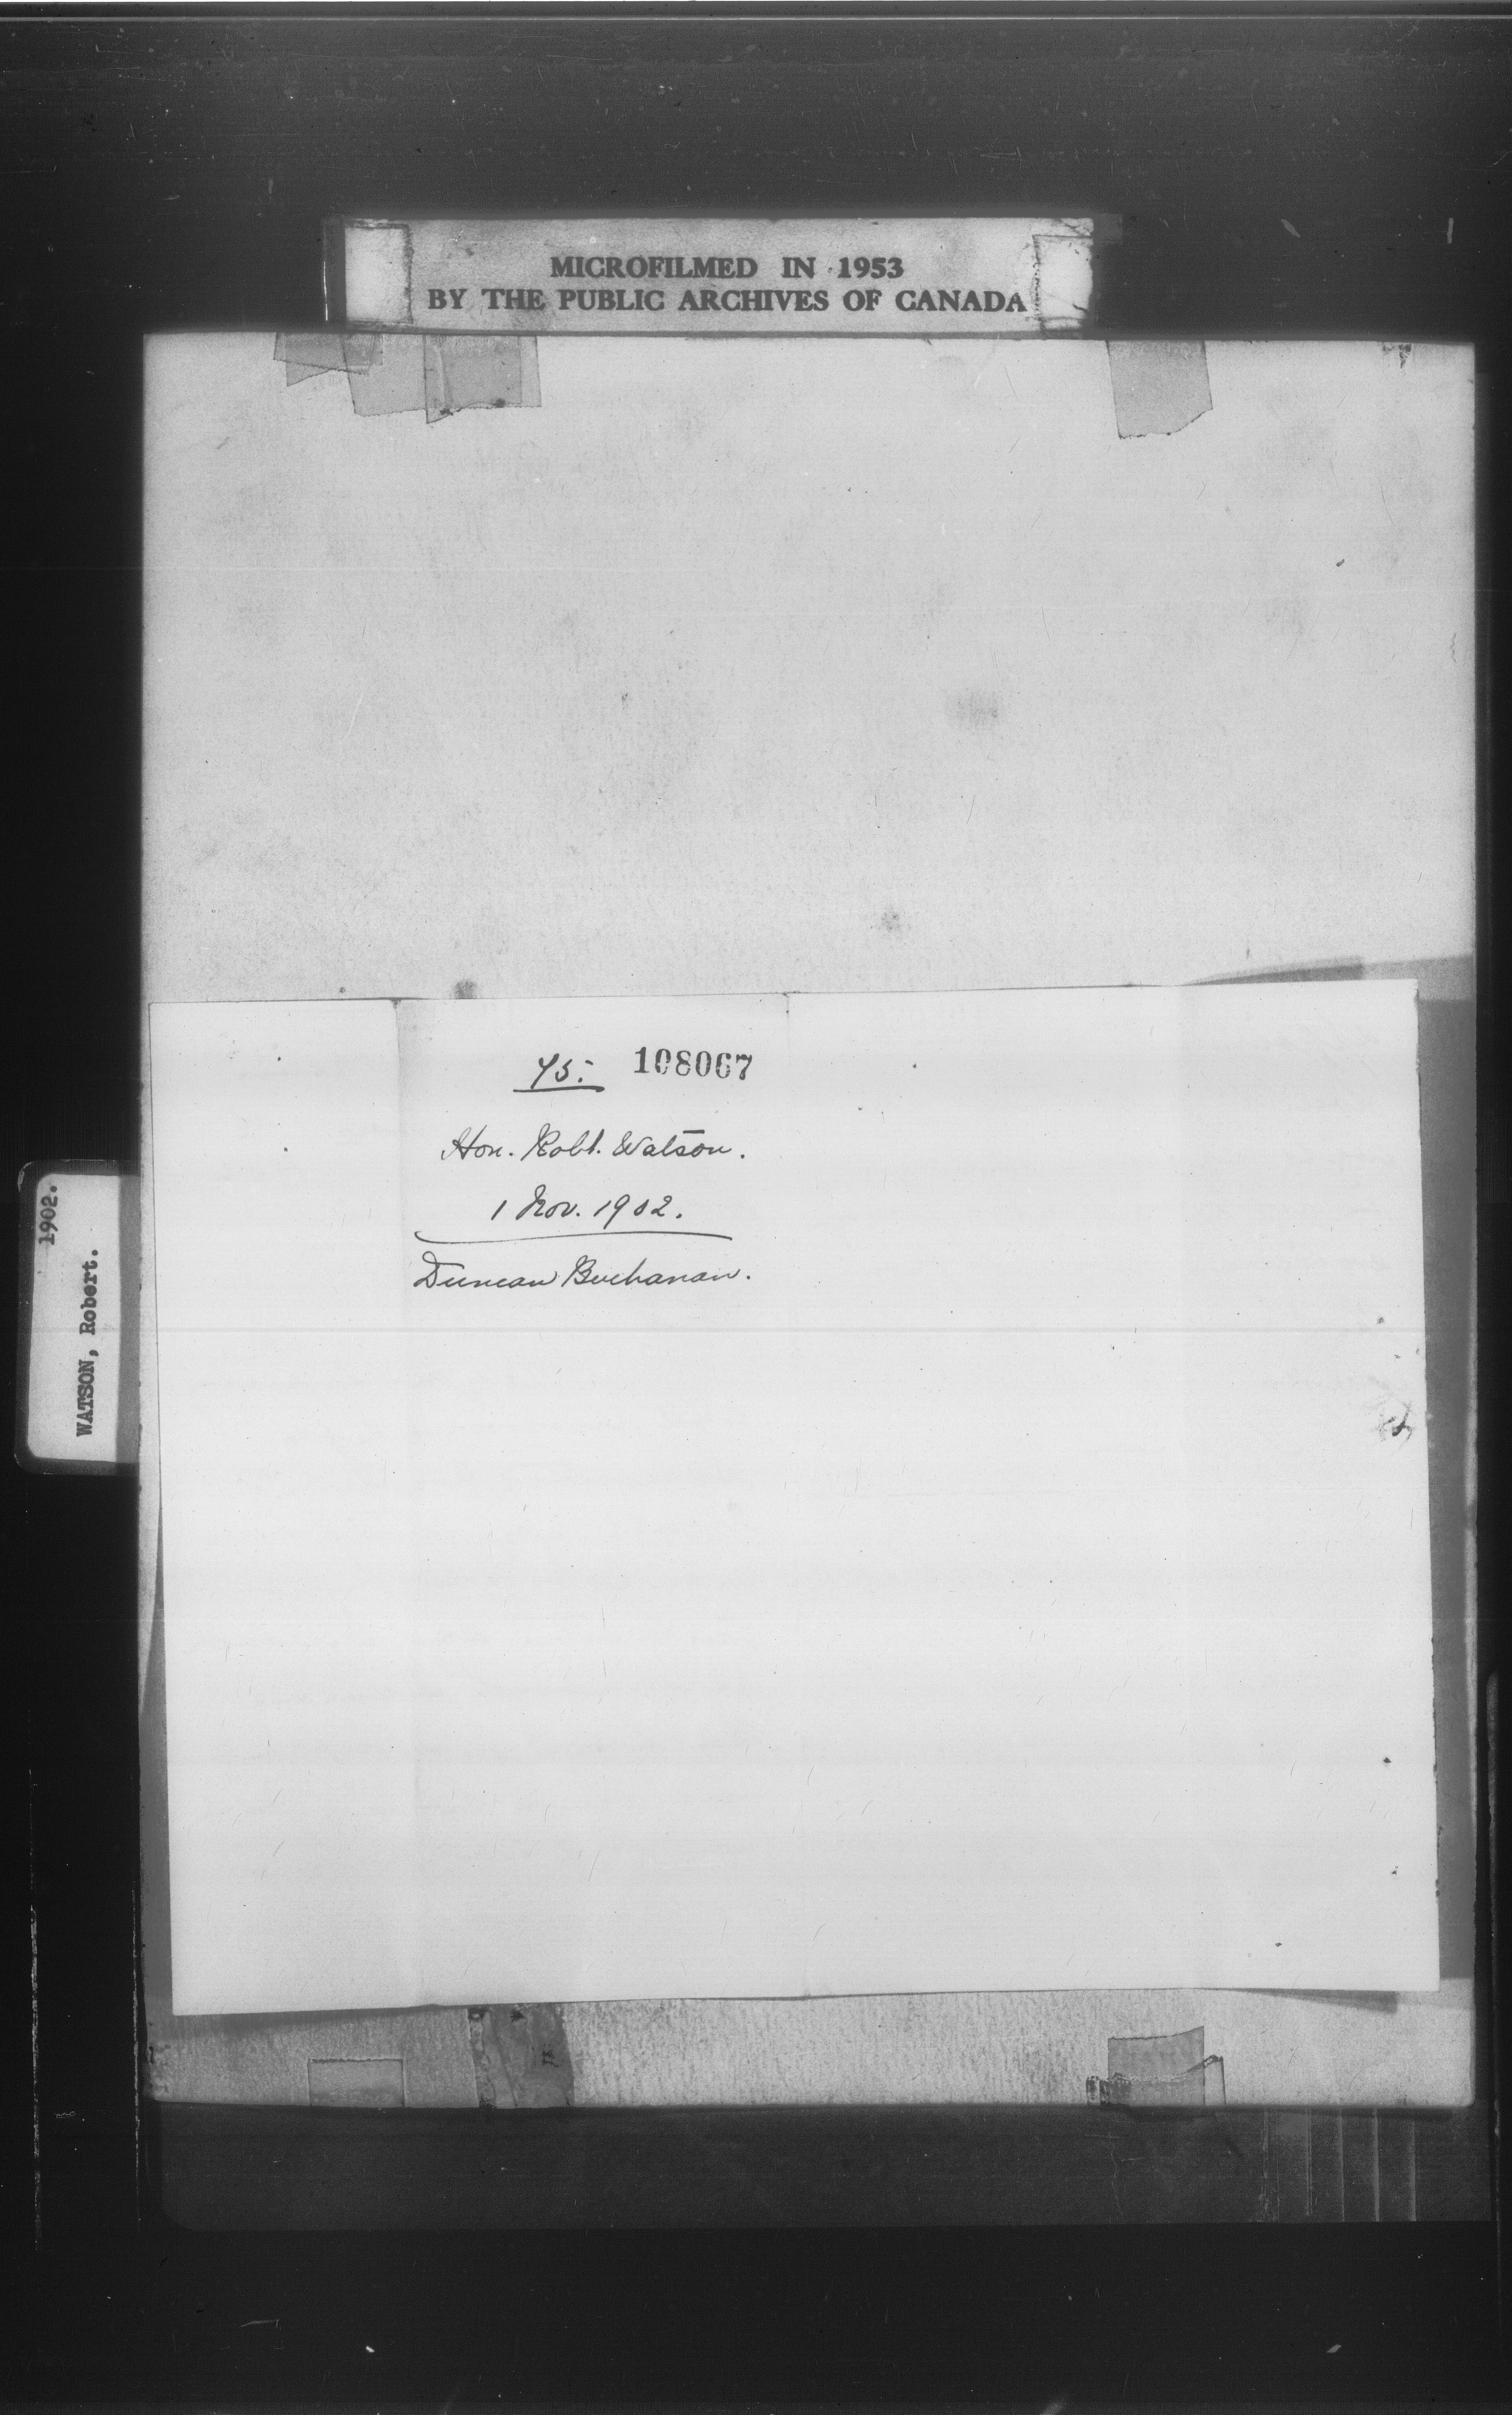 MICROFILMED IN 1953
BY THE PUBLIC ARCHIVES OF CANADA
108067
Hon. Robt. Watson.
1 Nov. 1902.
Duncan Buchanan.
1902.
WATSON, Robert.